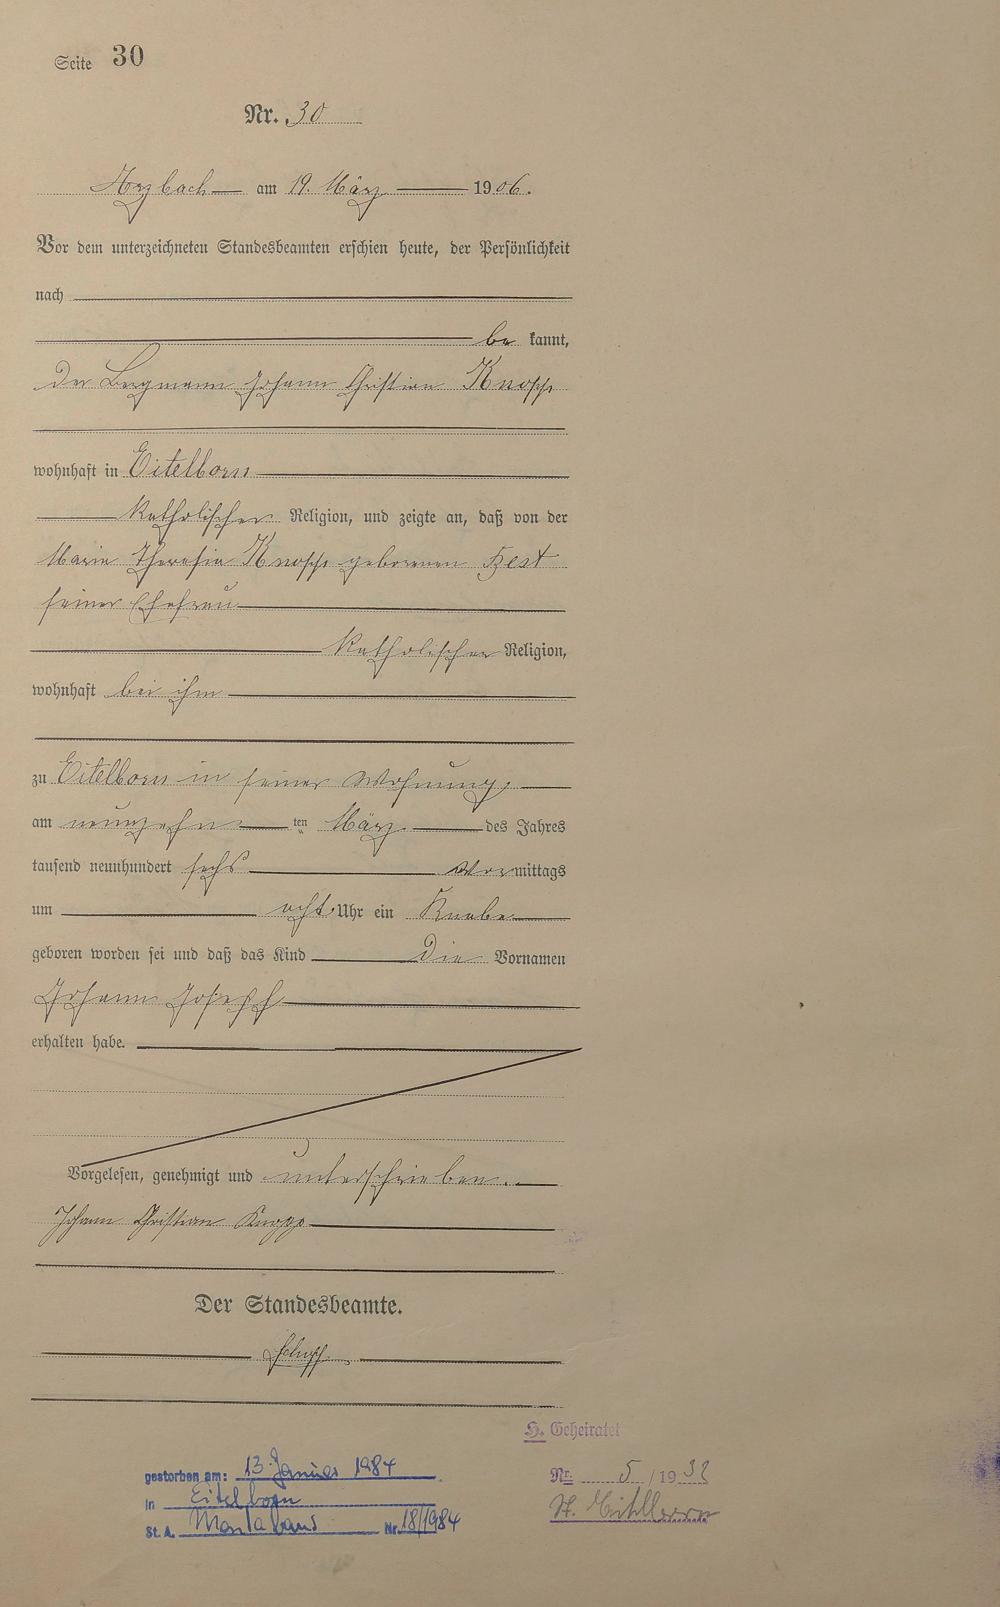 Seite 30
Nr. 30
Arzbach am 19. März 1906.
Vor dem unterzeichneten Standesbeamten erschien heute, der Persönlichkeit
nach
be kannt,
der Bergmann Johann Christian Knopp
wohnhaft in Eitelborn
katholischer Religion, und zeigte an, daß von der
Maria Theresia Knopp geborenen Best
seiner Ehefrau
katholischer Religion,
wohnhaft bei ihm
zu Eitelborn in seiner Wohnung,
am neunzehn ten März des Jahres
tausend neunhundert sechs Vor mittags
um acht Uhr ein Knabe
geboren worden sei und daß das Kind die Vornamen
Johann Joseph
erhalten habe.
Vorgelesen, genehmigt und unterschrieben.
Johann Christian Knopp
Der Standesbeamte.
H. Geheiratet
gestorben am: 13. Januar 1984
Nr. 5 / 19 32
in Eitelborn
St. A. Montabaur Nr. 18/1984